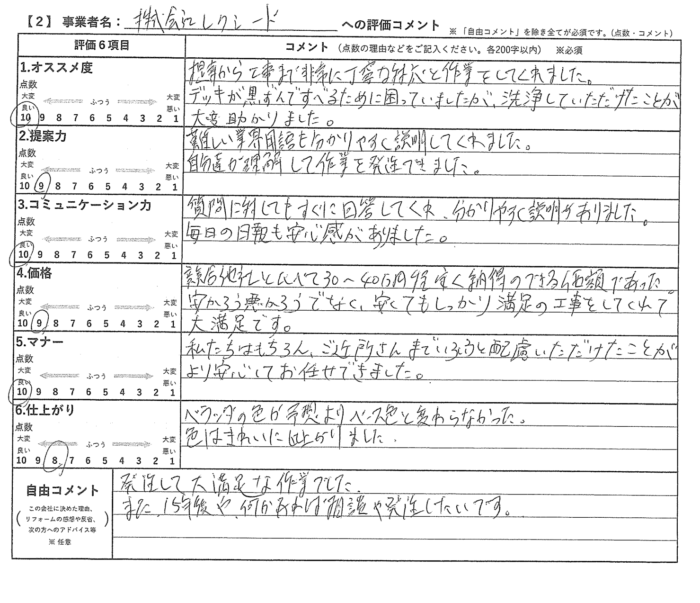 【2】事業者名: 株式会社レクシード への評価コメント ※「自由コメント」を除き全てが必須です。(点数・コメント)
評価6項目 コメント(点数の理由などをご記入ください。各200字以内) ※必須
1.オススメ度
点数
大変良い ふつう 大変悪い
10 9 8 7 6 5 4 3 2 1
担当から工事まで非常に丁寧な対応と作業をしてくれました。
デッキが黒ずんですべるために困っていましたが、洗浄していただけたことが
大変助かりました。
2.提案力
点数
大変良い ふつう 大変悪い
10 9 8 7 6 5 4 3 2 1
難しい業界用語も分かりやすく説明してくれました。
自分達が理解して作業を発注できました。
3.コミュニケーション力
点数
大変良い ふつう 大変悪い
10 9 8 7 6 5 4 3 2 1
質問に対してもすぐに回答してくれ、分かりやすく説明がありました。
毎日の日報も安心感がありました。
4.価格
点数
大変良い ふつう 大変悪い
10 9 8 7 6 5 4 3 2 1
他社とくらべて30〜40万円程安く納得のできる価額であった。
安かろう悪かろうでなく、安くてもしっかり満足の工事をしてくれて
大満足です。
5.マナー
点数
大変良い ふつう 大変悪い
10 9 8 7 6 5 4 3 2 1
私たちはもちろん、ご近所さんまでいろいろと配慮いただけたことが
より安心してお任せできました。
6.仕上がり
点数
大変良い ふつう 大変悪い
10 9 8 7 6 5 4 3 2 1
ベランダの色が予想よりベース色と変わらなかった。
色はきれいに仕上がりました.
自由コメント
(この会社に決めた理由、
リフォームの感想や反省、
次の方へのアドバイス等)
※ 任意
発注して大満足な作業でした.
また、15年後や、何かあれば相談や発注したいです。